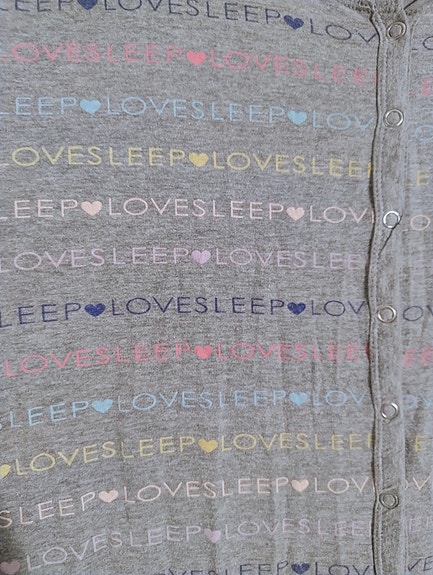 LOVESLEEP♥LOVESLEEP♥LOV
LOVESLEEP♥LOVESLEEP
LEEP♥LOVESLEEP♥LOV
LOVESLEEP♥LOVESLEEP
LEEP♥LOVESLEEP♥LOV
LOVESLEEP♥LOVESLEEP
LEEP♥LOVESLEEP♥LOV
LOVESLEEP♥LOVESLEEP
SLEEP♥LOVESLEEP♥LOV
♥LOVESLEEP♥LOVESLEEP
SLEEP♥LOVESLEEP♥LOV
♥LOVESLEEP♥LOVESLEEP
LOVESLEEP♥LOV